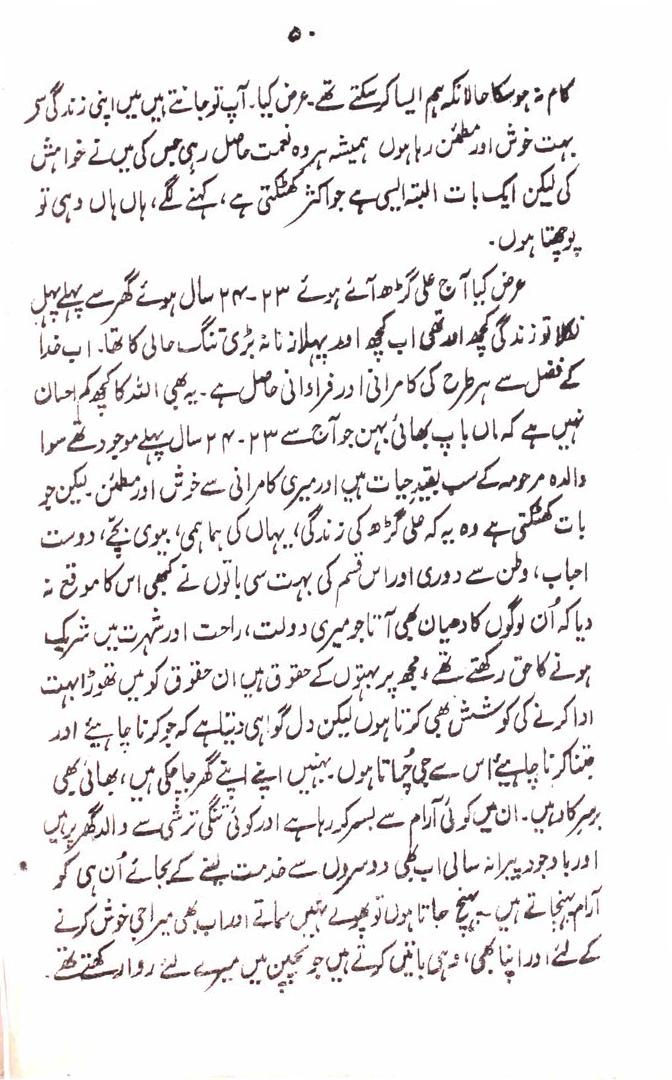 ۵۰
کام نہ ہو سکا حالانکہ ہم ایسا کر سکتے تھے۔ عرض کیا۔ آپ تو جانتے ہیں میں اپنی زندگی سے
بہت خوش اور مطمئن رہا ہوں ہمیشہ ہر وہ نعمت حاصل رہی جس کی میں نے خواہش
کی لیکن ایک بات البتہ ایسی ہے جو اکثر کھٹکتی ہے، کہنے لگے، ہاں ہاں وہی تو
پوچھتا ہوں۔
عرض کیا آج علی گڑھ آئے ہوئے ۲۳-۲۴ سال ہوئے گھر سے پہلے پہل
نکلا تو زندگی کچھ اور تھی اب کچھ اور پہلا زمانہ بڑی تنگ حالی کا تھا۔ اب خدا
کے فضل سے ہر طرح کی کامرانی اور فراوانی حاصل ہے۔ یہ بھی اللہ کا کچھ کم احسان
نہیں ہے کہ ماں باپ بھائی بہن جو آج سے ۲۳-۲۴ سال پہلے موجود تھے سوا
والدہ مرحومہ کے سب بقید حیات ہیں اور میری کامرانی سے خوش اور مطمئن۔ لیکن جو
بات کھٹکتی ہے وہ یہ کہ علی گڑھ کی زندگی، یہاں کی ہما ہمی، بیوی بچّے، دوست
احباب، وطن سے دوری اور اس قسم کی بہت سی باتوں نے کبھی اس کا موقع نہ
دیا کہ اُن لوگوں کا دھیان بھی آتا جو میری دولت، راحت اور شہرت میں شریک
ہونے کا حق رکھتے تھے، مجھ پر بہتوں کے حقوق ہیں ان حقوق کو میں تھوڑا بہت
ادا کرنے کی کوشش بھی کرتا ہوں لیکن دل گواہی دیتا ہے کہ جو کرنا چاہیئے اور
جتنا کرنا چاہیئے اس سے جی چُراتا ہوں۔ بہنیں اپنے اپنے گھر جا چکی ہیں، بھائی بھی
برسرکار ہیں۔ ان میں کوئی آرام سے بسر کر رہا ہے اور کوئی تنگی ترشی سے والد گھر پر ہیں
اور باوجود پیرانہ سالی اب بھی دوسروں سے خدمت لینے کے بجائے اُن ہی کو
آرام پہنچاتے ہیں۔ پہنچ جاتا ہوں تو پھولے نہیں سماتے اور اب بھی میرا جی خوش کرنے
کے لئے اور اپنا بھی، وہی باتیں کرتے ہیں جو بچپن میں میرے لئے روا رکھتے تھے۔